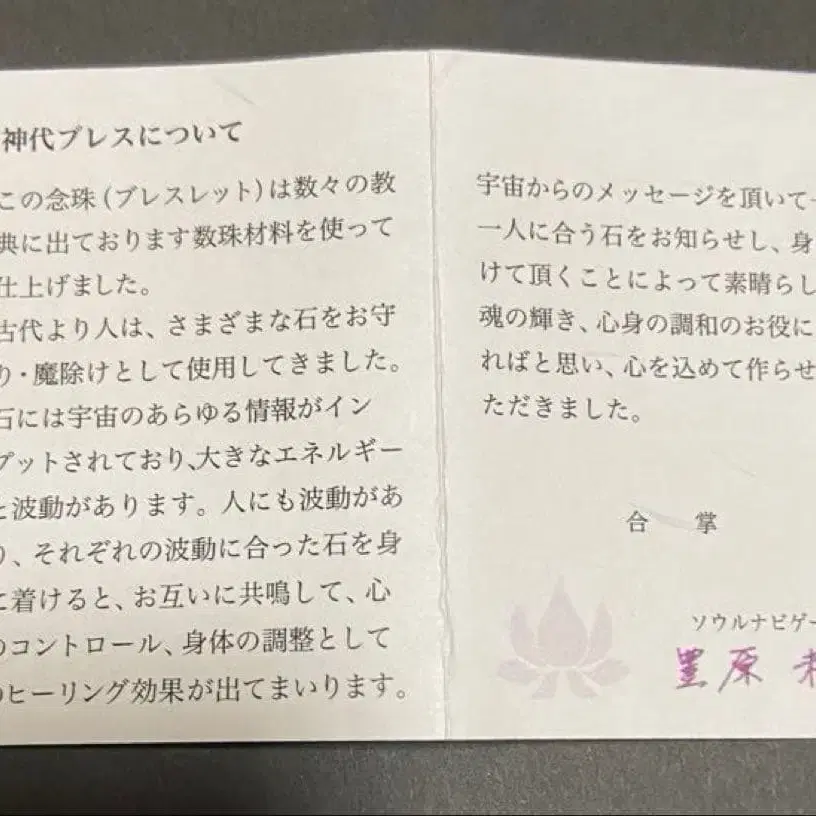 神代ブレスについて
この念珠(ブレスレット)は数々の教
典に出ております数珠材料を使って
仕上げました。
古代より人は、さまざまな石をお守
り・魔除けとして使用してきました。
石には宇宙のあらゆる情報がイン
プットされており、大きなエネルギー
と波動があります。人にも波動があ
り、それぞれの波動に合った石を身
に着けると、お互いに共鳴して、心
のコントロール、身体の調整として
のヒーリング効果が出てまいります。
宇宙からのメッセージを頂いて
一人に合う石をお知らせし、身
けて頂くことによって素晴らし
魂の輝き、心身の調和のお役に
ればと思い、心を込めて作らせ
ただきました。
合 掌
ソウルナビゲー
豊原